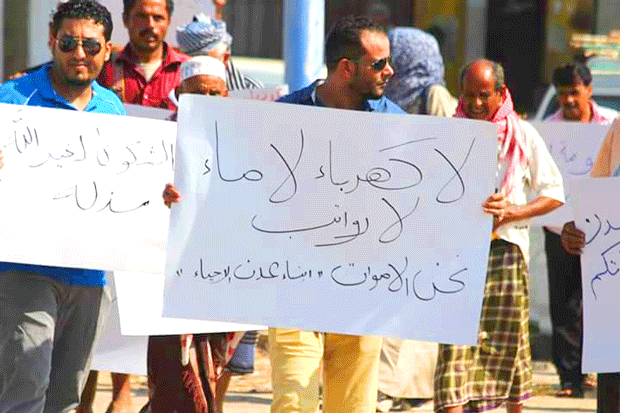 لا كهرباء لا ماء
لا رواتب
نحن الاموت "ابناء عدن الاحياء"
الشكوى لغير الله
مذله